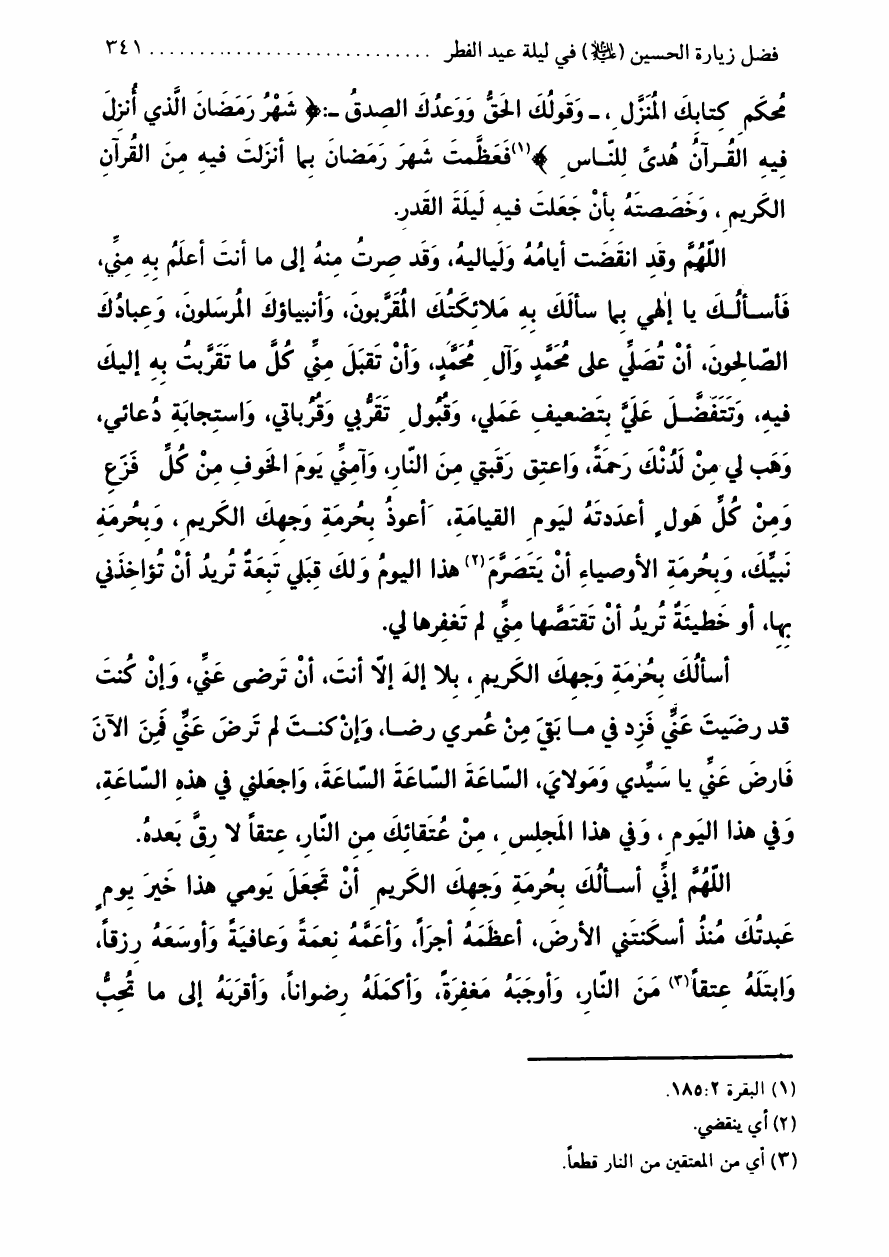 فضل زيارة الحسين (عليه السلام) في ليلة عيد الفطر ............................ ٣٤١
مُحكَمِ كتابِكَ المُنَزَّلِ، ـ وَقَولُكَ الحَقُّ وَوَعدُكَ الصدقُ ـ: ﴿ شَهْرُ رَمَضَانَ الَّذي أُنزِلَ
فِيهِ القُـرآنُ هُدىً لِلنّـاسِ ﴾(١) فَعَظَّمتَ شَهرَ رَمَضانَ بِما أنزَلتَ فيهِ مِنَ القُرآنِ
الكَريمِ، وَخَصَصتَهُ بِأنْ جَعَلتَ فيهِ لَيلَةَ القَدرِ.
اللّهُمَّ وقَدِ انقَضَت أيامُهُ وَلَياليهُ، وَقَد صِرتُ مِنهُ إلى ما أنتَ أعلَمُ بِهِ مِنّي،
فَأسـألُـكَ يا إلٰهي بِما سألَكَ بِهِ مَلائِكَتُكَ المُقَرَّبونَ، وَأنبياؤكَ المُرسَلونَ، وَعِبادُكَ
الصّالِحونَ، أنْ تُصَلّي على مُحَمَّدٍ وَآلِ مُحَمَّدٍ، وَأنْ تَقبَلَ مِنّي كُلَّ ما تَقَرَّبتُ بِهِ إليكَ
فيهِ، وَتَتَفَضَّـلَ عَلَيَّ بِتَضعيفِ عَمَلي، وَقُبُولِ تَقَرُّبي وَقُرُباتي، وَاستِجابَةِ دُعائي،
وَهَب لي مِنْ لَدُنْكَ رَحمَةً، وَاعتِق رَقَبَتي مِنَ النّارِ، وَآمِنّي يَومَ الخَوفِ مِنْ كُلِّ فَزَعٍ
وَمِنْ كُلِّ هَولٍ أعدَدتَهُ لِيَومِ القيامَةِ، أعوذُ بِحُرمَةِ وَجهِكَ الكَريمِ، وَبِحُرمَةِ
نَبِيِّكَ، وَبِحُرمَةِ الأوصياءِ أنْ يَتَصَرَّمَ(٢) هذا اليومُ وَلكَ قِبَلي تَبِعَةٌ تُريدُ أنْ تُؤاخِذَني
بِها، أو خَطيئَةٌ تُريدُ أنْ تَقتَصَّها مِنّي لم تَغفِرها لي.
أسألُكَ بِحُرمَةِ وَجهِكَ الكَريمِ، بِلا إلهَ إلّا أنتَ، أنْ تَرضى عَنّي، وَإنْ كُنتَ
قد رضَيتَ عَنّي فَزِد في مـا بَقيَ مِنْ عُمري رِضـا، وَإنْ كنـتَ لم تَرضَ عَنّي فَمِنَ الآنَ
فَارضَ عَنّي يا سَيِّدي وَمَولايَ، السّاعَةَ السّاعَةَ السّاعَةَ، وَاجعَلني في هذهِ السّاعَةِ،
وَفي هذا اليَومِ، وَفي هذا المَجلِسِ، مِنْ عُتَقائِكَ مِنَ النّارِ، عِتقاً لا رِقَّ بَعدهُ.
اللّهُمَّ إنّي أسـألُكَ بِحُرمَةِ وَجهِكَ الكَريمِ أنْ تَجعَلَ يَومي هذا خَيرَ يومٍ
عَبدتُكَ مُنذُ أسكَنتَني الأرضَ، أعظَمَهُ أجرَاً، وَأعَمَّهُ نِعمَةً وَعافيَةً وَأوسَعَهُ رِزقاً،
وَابتَلَهُ عِتقاً(٣) مَنَ النّارِ، وَأوجَبَهُ مَغفِرَةً، وَأكمَلَهُ رِضواناً، وَأقرَبَهُ إلى ما تُحِبُّ
(١) البقرة ٢:١٨٥.
(٢) أي ينقضي.
(٣) أي من المعتقين من النار قطعاً.